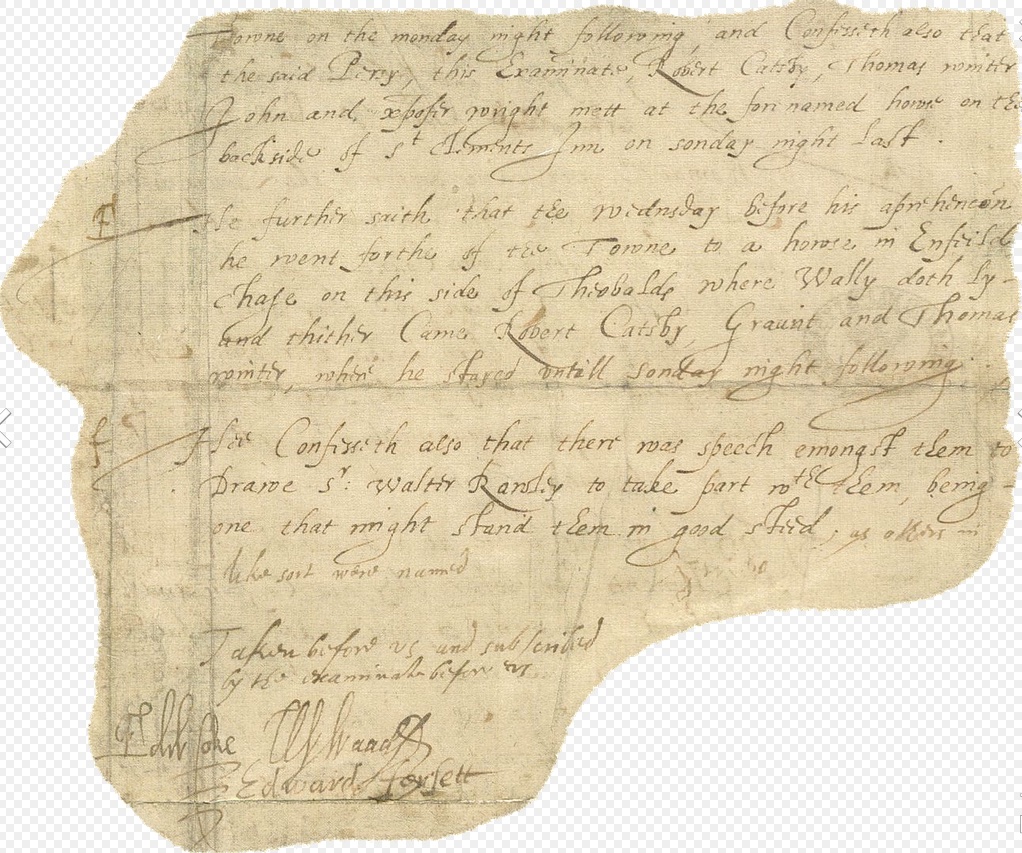 Towne on the monday night following, and Confesseth also that
the said Percy, this Examinate, Robert Catsby, Thomas winter
John and xpofer wright mett at the forenamed howse on the
backside of St Clements Inn on sonday night last.
F
He further saith that the wednsday before his aprhencon
he went forthe of the Towne to a howse in Enfeild
Chase on this side of Theobalds where Wally doth ly-
and thither Came Robert Catsby, Graunt and Thomas
winter, where he stayed untill sonday night following.
f
Hee Confesseth also that there was speech emongst them to
Drawe Sr: Walter Rawley to take part wth them, being-
one that might stand them in good steed, as others in
like sort were named
Taken before us and subscribed
by the examinate before us
Edw Coke W Waad
Edward Forsett